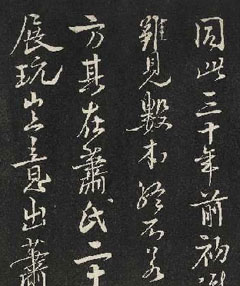 因此三十年前初
雖見數本終不若
方其在蕭氏二十
展玩意出蕭